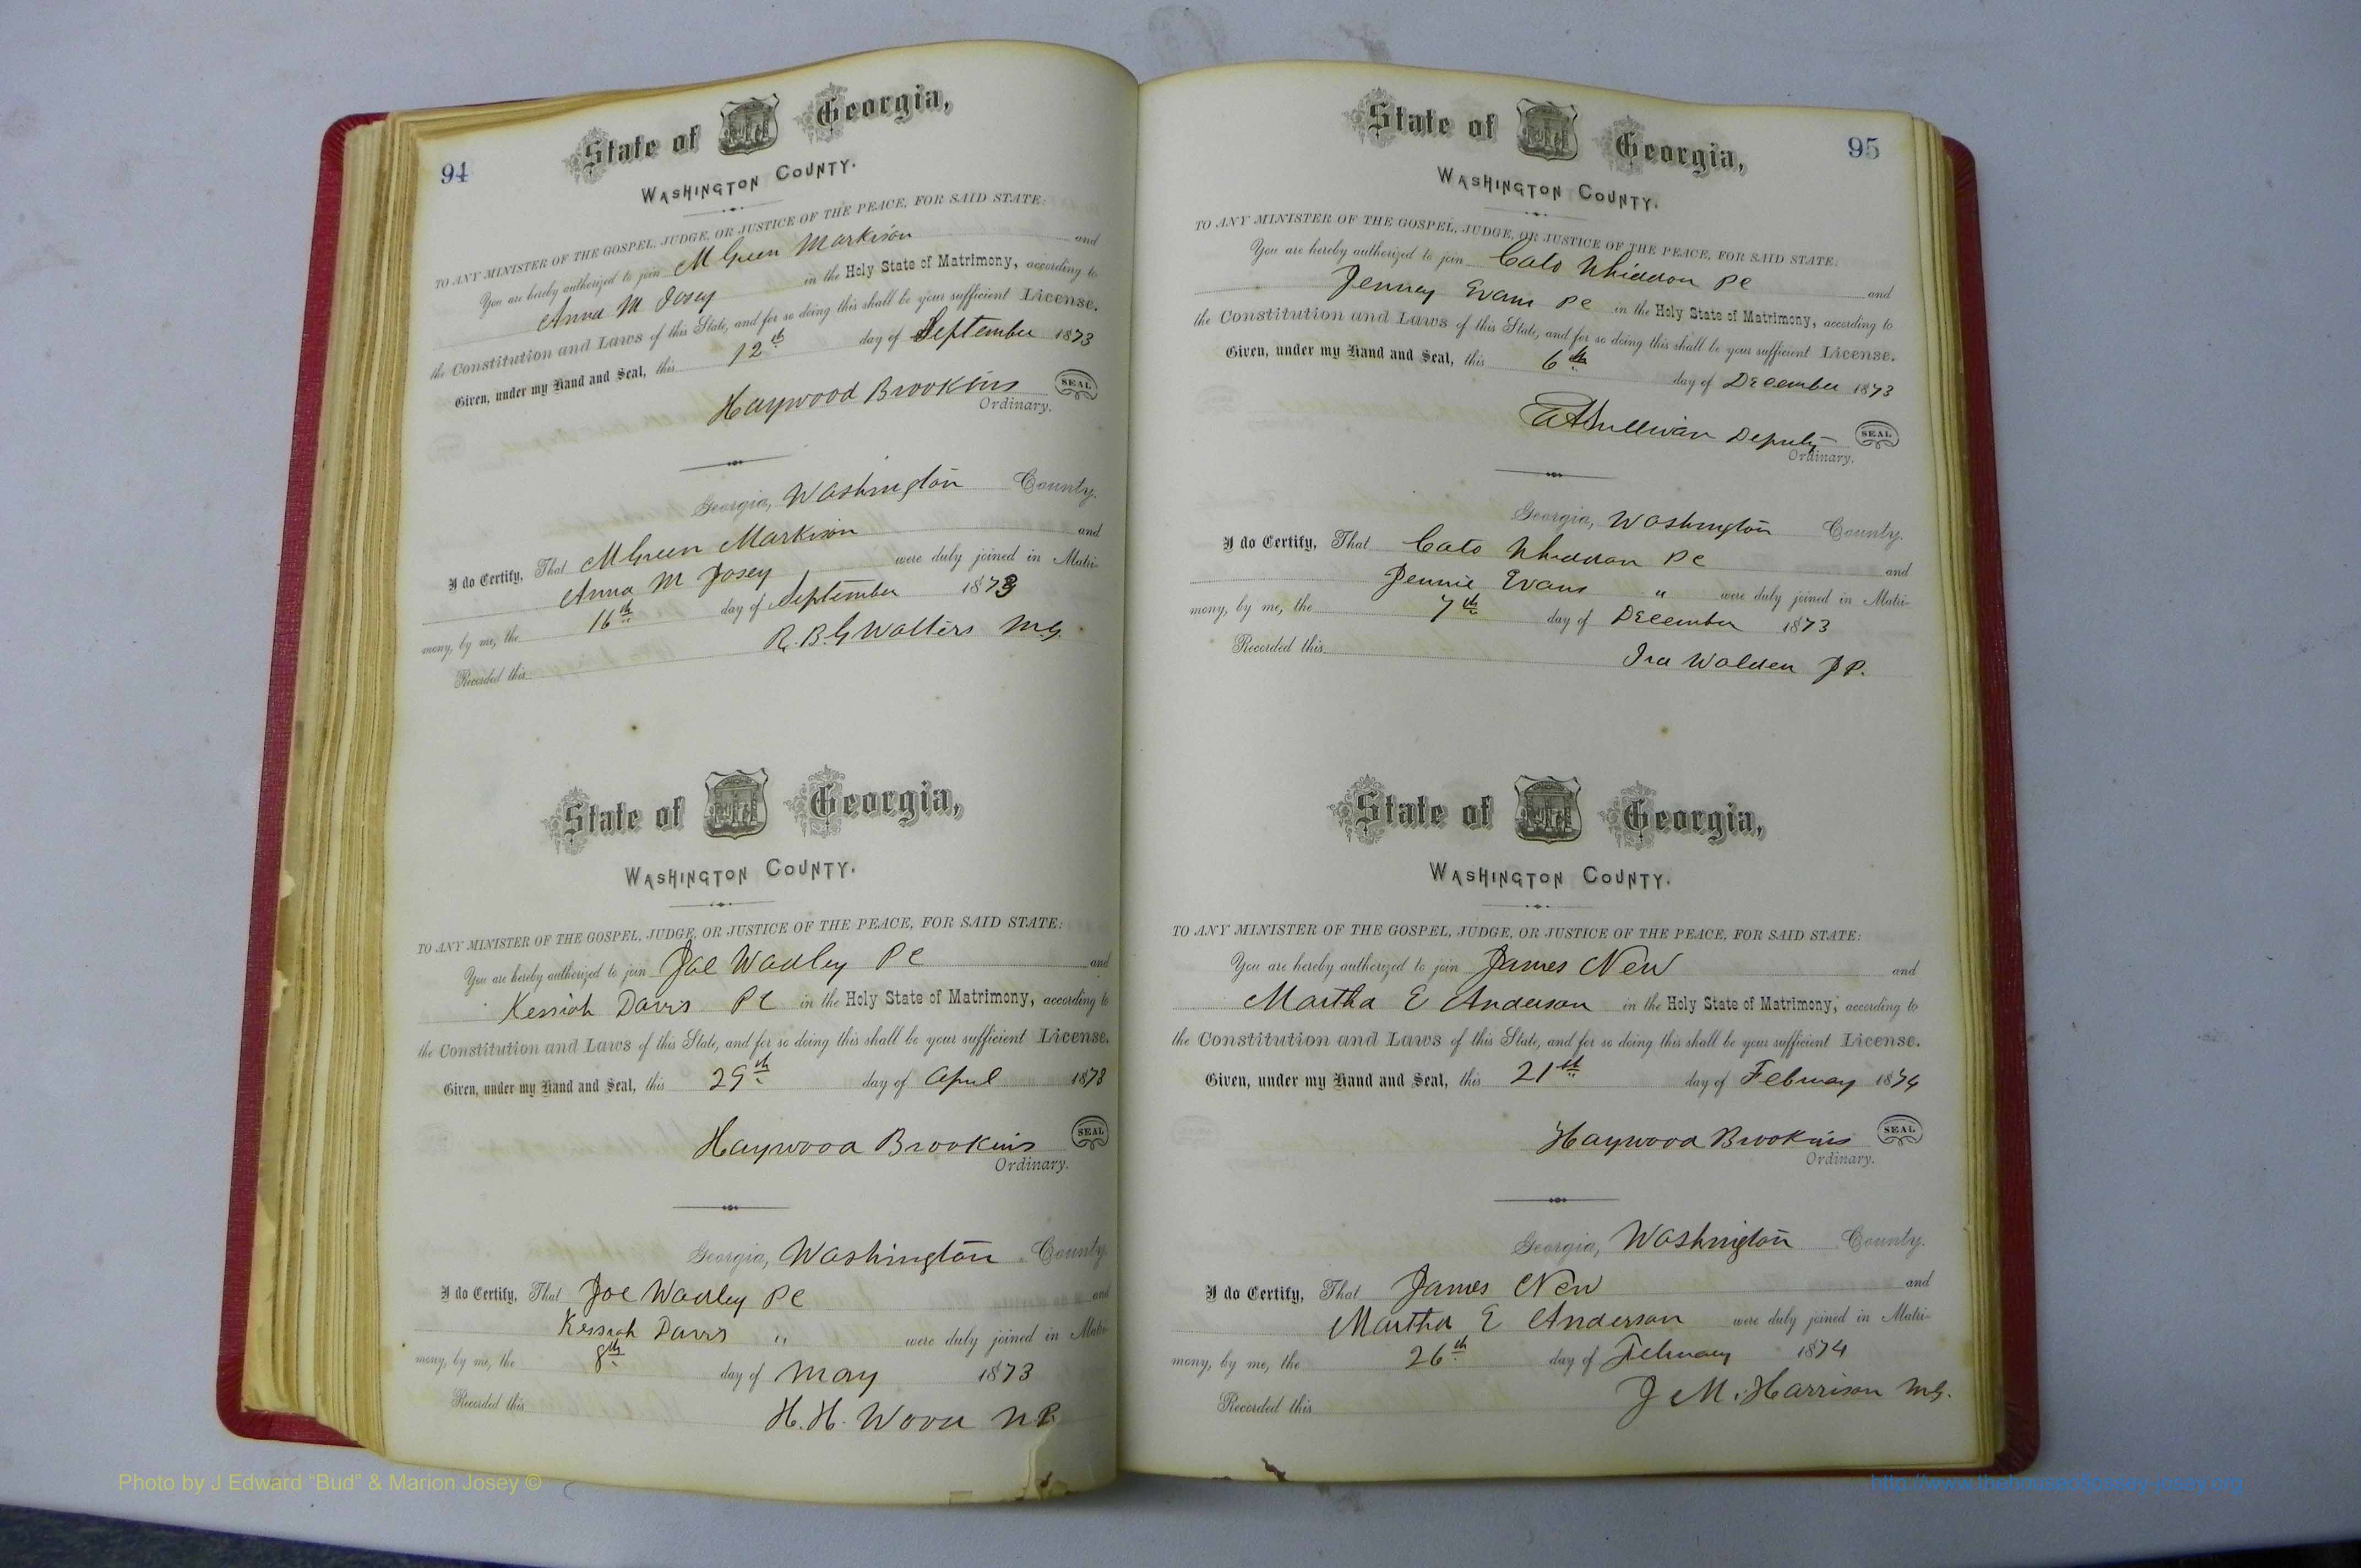 94
State of Georgia,
WASHINGTON COUNTY.
TO ANY MINISTER OF THE GOSPEL, JUDGE, OR JUSTICE OF THE PEACE, FOR SAID STATE:
You are hereby authorized to join M Green Markison and
Anna M Josey in the Holy State of Matrimony, according to
the Constitution and Laws of this State, and for so doing this shall be your sufficient License.
Given, under my Hand and Seal, this 12th day of September 1873
Haywood Brookins SEAL
Ordinary.
Georgia, Washington County.
I do Certify, That M Green Markison and
Anna M Josey were duly joined in Matri-
mony, by me, the 16th day of September 1873
R. B. G Walters MG
Recorded this
State of Georgia,
WASHINGTON COUNTY.
TO ANY MINISTER OF THE GOSPEL, JUDGE, OR JUSTICE OF THE PEACE, FOR SAID STATE:
You are hereby authorized to join Joe Wadley PC and
Kessiah Davis PC in the Holy State of Matrimony, according to
the Constitution and Laws of this State, and for so doing this shall be your sufficient License.
Given, under my Hand and Seal, this 29th day of April 1873
Haywood Brookins SEAL
Ordinary.
Georgia, Washington County
I do Certify, That Joe Wadley PC and
Kessiah Davis " were duly joined in Matri-
mony, by me, the 8th day of May 1873
Recorded this
H. H. Wood N.P.
95
State of Georgia,
WASHINGTON COUNTY.
TO ANY MINISTER OF THE GOSPEL, JUDGE, OR JUSTICE OF THE PEACE, FOR SAID STATE:
You are hereby authorized to join Cato Whiddon PC and
Jenney Evans PC in the Holy State of Matrimony, according to
the Constitution and Laws of this State, and for so doing this shall be your sufficient License.
Given, under my Hand and Seal, this 6th day of December 1873
Sullivan Deputy SEAL
Ordinary.
Georgia, Washington County.
I do Certify, That Cato Whiddon PC and
Jennie Evans " were duly joined in Matri-
mony, by me, the 7th day of December 1873
Recorded this
Ira Walden JP.
State of Georgia,
WASHINGTON COUNTY.
TO ANY MINISTER OF THE GOSPEL, JUDGE, OR JUSTICE OF THE PEACE, FOR SAID STATE:
You are hereby authorized to join James New and
Martha E Anderson in the Holy State of Matrimony, according to
the Constitution and Laws of this State, and for so doing this shall be your sufficient License.
Given, under my Hand and Seal, this 21th day of February 1874
Haywood Brookins SEAL
Ordinary.
Georgia, Washington County.
I do Certify, That James New and
Martha E Anderson were duly joined in Matri-
mony, by me, the 26th day of February 1874
J M. Harrison MG.
Recorded this
Photo by J Edward “Bud” & Marion Josey ©
http://www.thehouseofjossey-josey.org